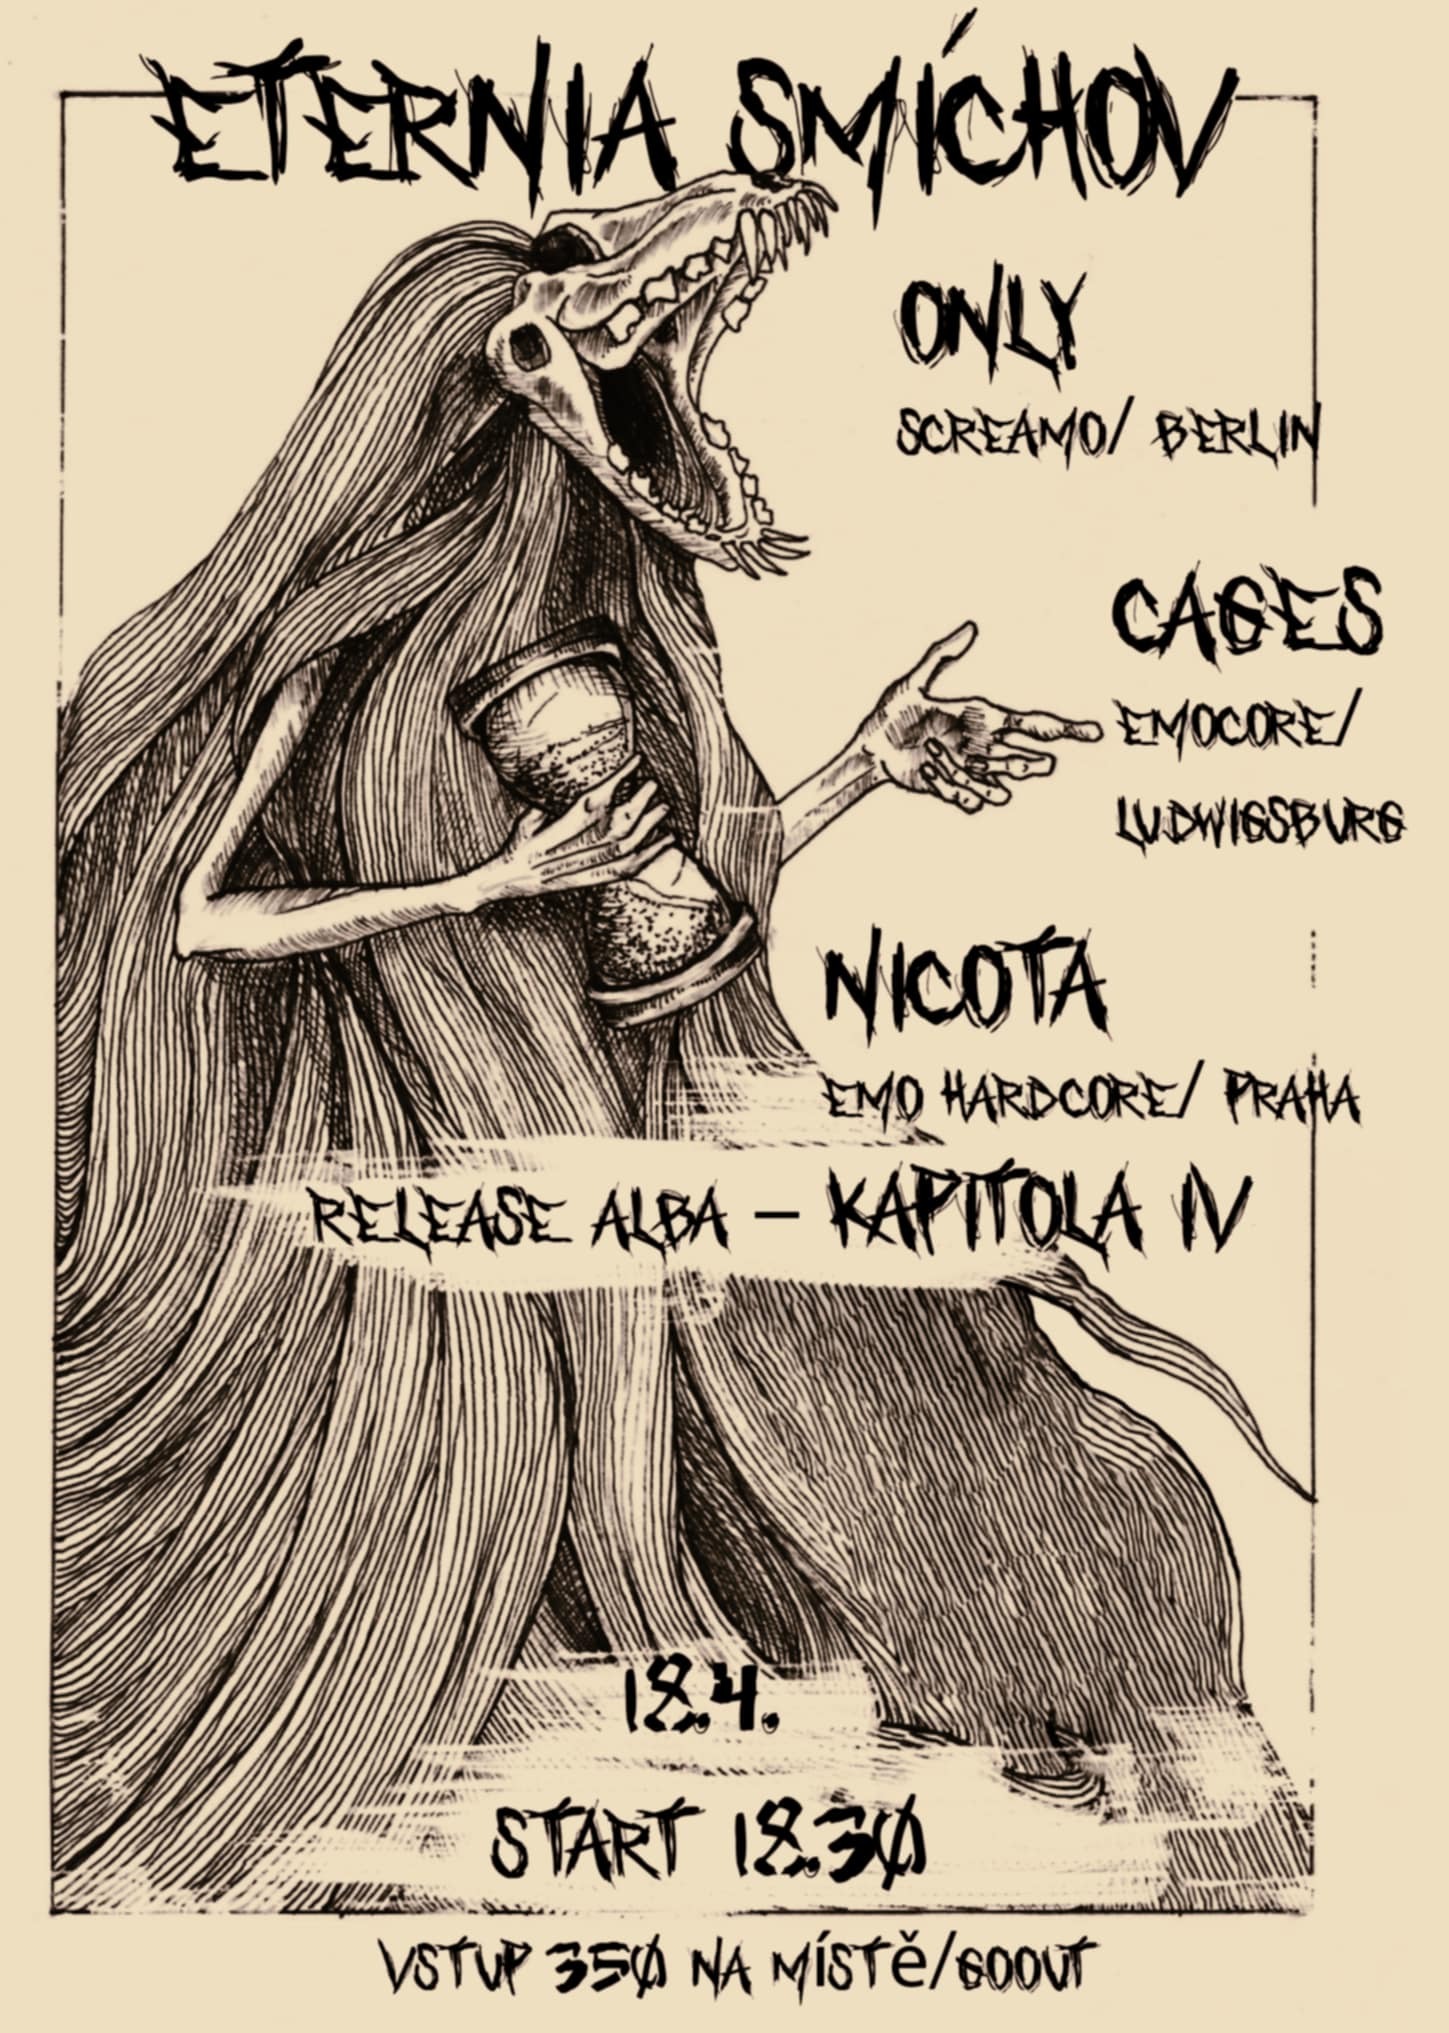 ETERNIA SMÍCHOV
ONLY
SCREAMO/ BERLIN
CAGES
EMOCORE/
LUDWIGSBURG
NICOTA
EMO HARDCORE/ PRAHA
RELEASE ALBA – KAPITOLA IV
18.4.
START 18.30
VSTUP 350 NA MÍSTĚ/GOOUT